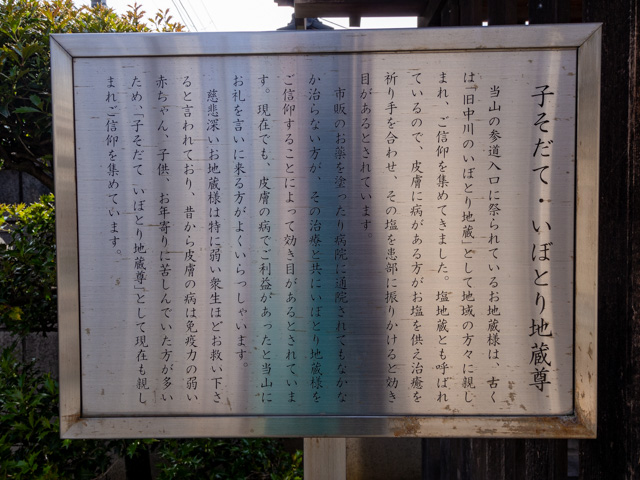 子そだて・いぼとり地蔵尊
当山の参道入口に祭られているお地蔵様は、古く
は「旧中川のいぼとり地蔵」として地域の方々に親し
まれ、ご信仰を集めてきました。塩地蔵とも呼ばれ
ているので、皮膚に病がある方がお塩を供え治癒を
祈り手を合わせ、その塩を患部に振りかけると効き
目があるとされています
市販のお薬を塗ったり病院に通院されてもなかな
か治らない方が、その治療と共にいぼとり地蔵様を
ご信仰することによって効き目があるとされていま
す。現在でも、皮膚の病でご利益があったと当山に
お礼を言いに来る方がよくいらっしゃいます。
慈悲深いお地蔵様は特に弱い衆生ほどお救い下さ
ると言われており、昔から皮膚の病は免疫力の弱い
赤ちゃん、子供、お年寄りに苦しんでいた方が多い
ため、「子そだて いぼとり地蔵尊」として現在も親し
まれご信仰を集めています。